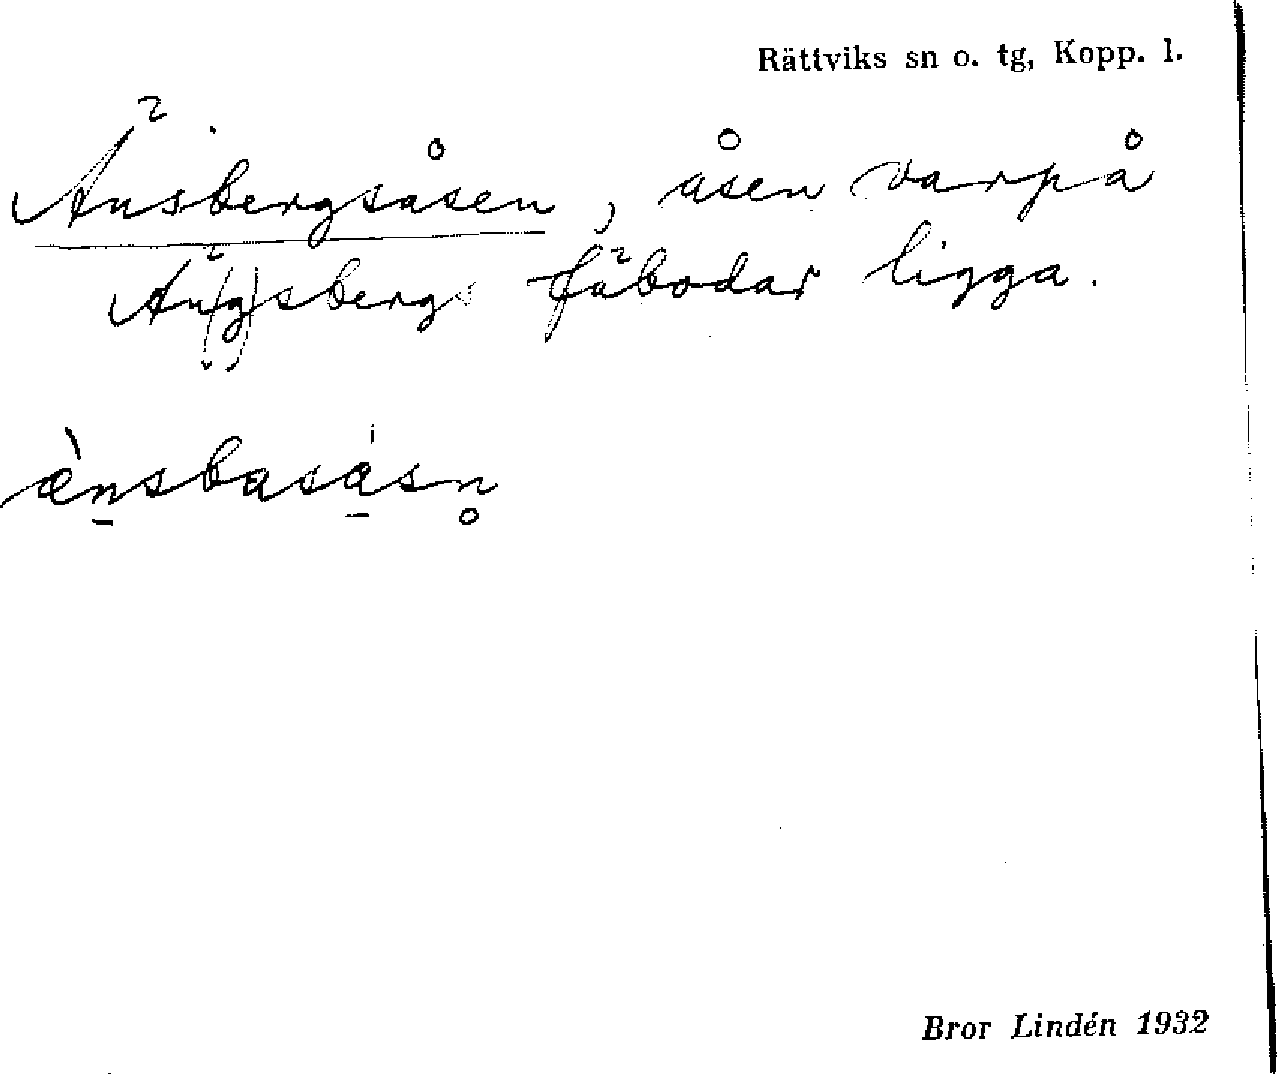 Rättviks sn o. tg, Kopp. l.
Änsbergsåsen, åsen varpå
Än(g)sbergs fäbodar ligga.
Bror Lindén 1932